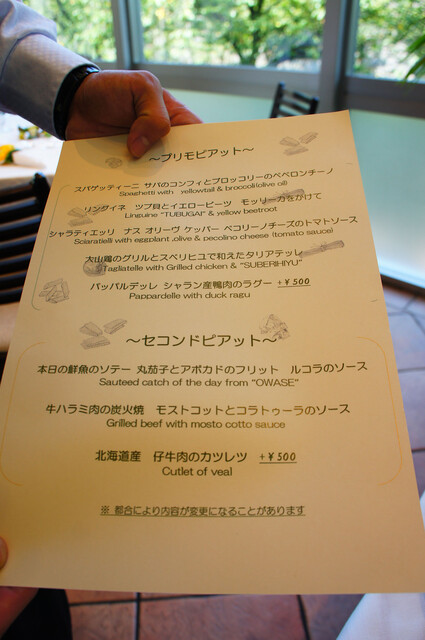 ～プリモピアット～
スパゲッティーニ サバのコンフィとブロッコリーのペペロンチーノ
Spaghetti with yellowtail & broccoli(olive oil)
リングイネ ツブ貝とイエロービーツ モッリーカをかけて
Linguine "TUBUGAI" & yellow beetroot
シャラティエッリ ナス オリーヴ ケッパー ペコリーノチーズのトマトソース
Sciaratielli with eggplant ,olive & pecolino cheese (tomato sauce)
大山鶏のグリルとスベリヒユで和えたタリアテッレ
Tagliatelle with Grilled chicken & "SUBERIHIYU"
パッパルデッレ シャラン産鴨肉のラグー +¥500
Pappardelle with duck ragu
～セコンドピアット～
本日の鮮魚のソテー 丸茄子とアボカドのフリット ルコラのソース
Sauteed catch of the day from "OWASE"
牛ハラミ肉の炭火焼 モストコットとコラトゥーラのソース
Grilled beef with mosto cotto sauce
北海道産 仔牛肉のカツレツ +¥500
Cutlet of veal
※ 都合により内容が変更になることがあります